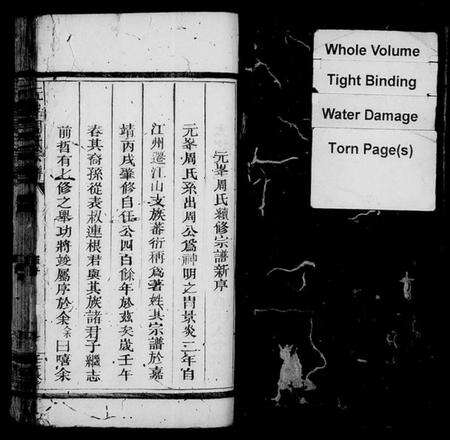 元峯周氏續修宗譜新序
元峯周氏系出周公爲神明之胄景炎二年自
江州遷江山支族蕃衍稱爲著姓其宗譜於嘉
靖丙戌肇修自任公四百餘年於兹矣歲壬午
春其裔孫從表叔連根君與其族諸君子繼志
前哲有七修之舉功將竣屬序於余余曰嘻余
Whole Volume
Tight Binding
Water Damage
Torn Page(s)